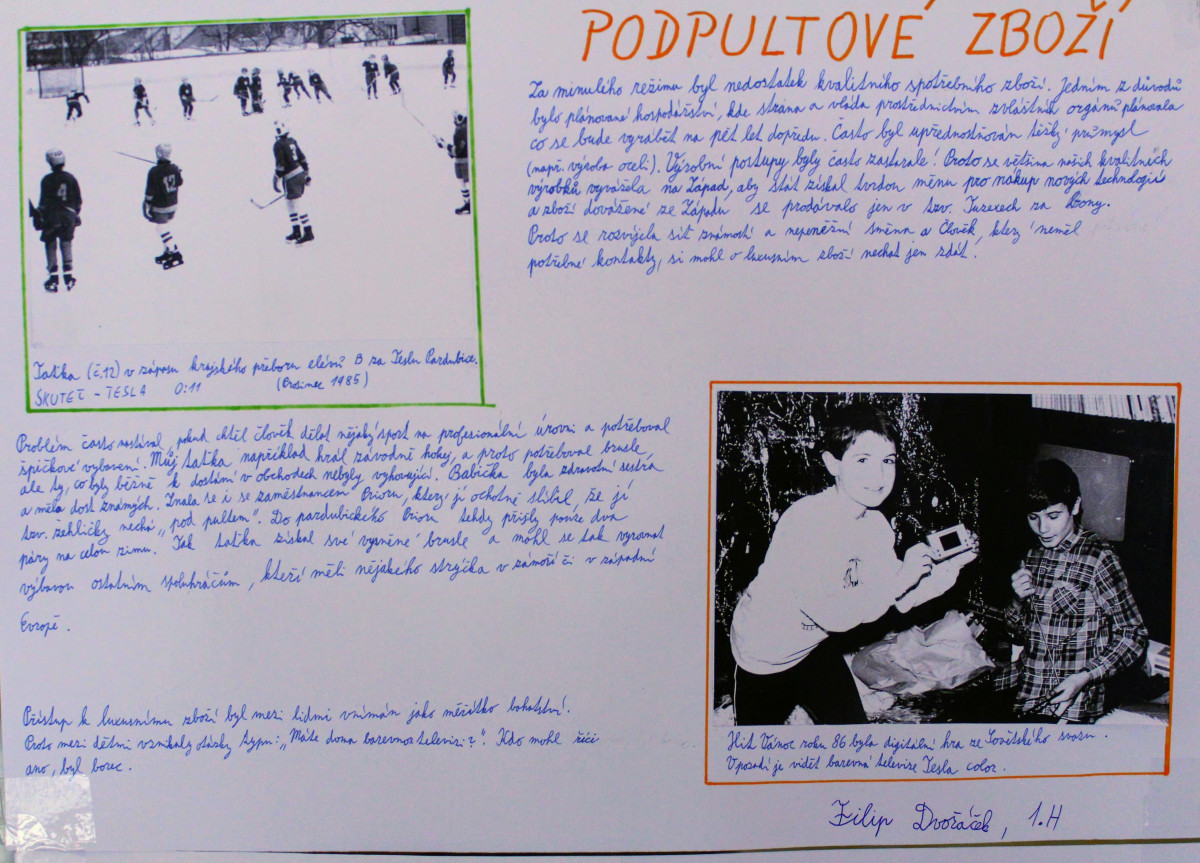 PODPULTOVÉ ZBOŽÍ
Za minulého režimu byl nedostatek kvalitního spotřebního zboží. Jedním z důvodů
bylo plánované hospodářství, kde strana a vláda prostřednictvím zvláštních orgánů plánovala
co se bude vyrábět na pět let dopředu. Často byl upřednostňován těžký průmysl
(např. výroba oceli). Výrobní postupy byly často zastaralé! Proto se většina našich kvalitních
výrobků vyvážela na Západ, aby stát získal tvrdou měnu pro nákup nových technologií
a zboží dovážené ze Západu se prodávalo jen v tzv. Tuzexech za bony.
Proto se rozvíjela síť známostí a nepeněžní směna a Člověk, který neměl
potřebné kontakty, si mohl o luxusním zboží nechat jen zdát.
Taťka (č.12) v zápasu krajského přeboru elévů B za Teslu Pardubice.
SKUTEČ - TESLA 0:11 (Prosinec 1985)
Problém často nastával, pokud chtěl člověk dělat nějaký sport na profesionální úrovni a potřeboval
špičkové vybavení. Můj taťka například hrál závodně hokej, a proto potřeboval brusle,
ale ty, co byly běžně k dostání v obchodech nebyly vyhovující. Babička byla zdravotní sestra
a měla dost známých. Znala se i se zaměstnancem Prioru, který jí ochotně slíbil, že jí
tzv. žehličky nechá „pod pultem". Do pardubického Prioru tehdy přišly pouze dva
páry na celou zimu. Tak taťka získal své vysněné brusle a mohl se tak vyrovnat
výbavou ostatním spoluhráčům, kteří měli nějakého strýčka v zámoří či v západní
Evropě.
Přístup k luxusnímu zboží byl mezi lidmi vnímán jako měřítko bohatství.
Proto mezi dětmi vznikaly otázky typu: „Máte doma barevnou televizi?". Kdo mohl říci
ano, byl borec.
Hit Vánoc roku 86 byla digitální hra ze Sovětského svazu.
V pozadí je vidět barevná televize Tesla color.
Filip Dvořáček, 1.H
4
12